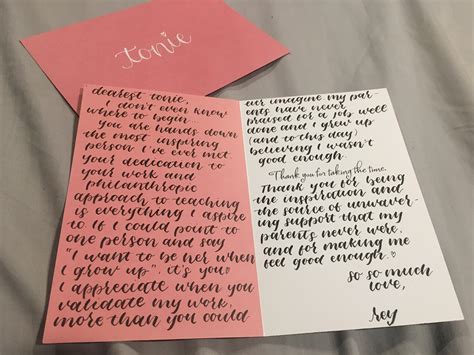 tonie
dearest tonie,
I don't even know
where to begin.
you are hands down
the most inspiring
person I've ever met.
your dedication to
your work and
philanthropic
approach to teaching
is everything I aspire
to. If I could point to
one person and say
"I want to be her when
I grow up", it's you♡
I appreciate when you
validate my work,
more than you could
ever imagine. my par-
ents have never
praised for a job well
done and I grew up
(and to this day)
believing I wasn't
good enough.
Thank you for taking the time.
Thank you for being
the inspiration and
the source of unwaver-
ing support that my
parents never were.
and for making me
feel good enough.♡
so so much
love,
rey